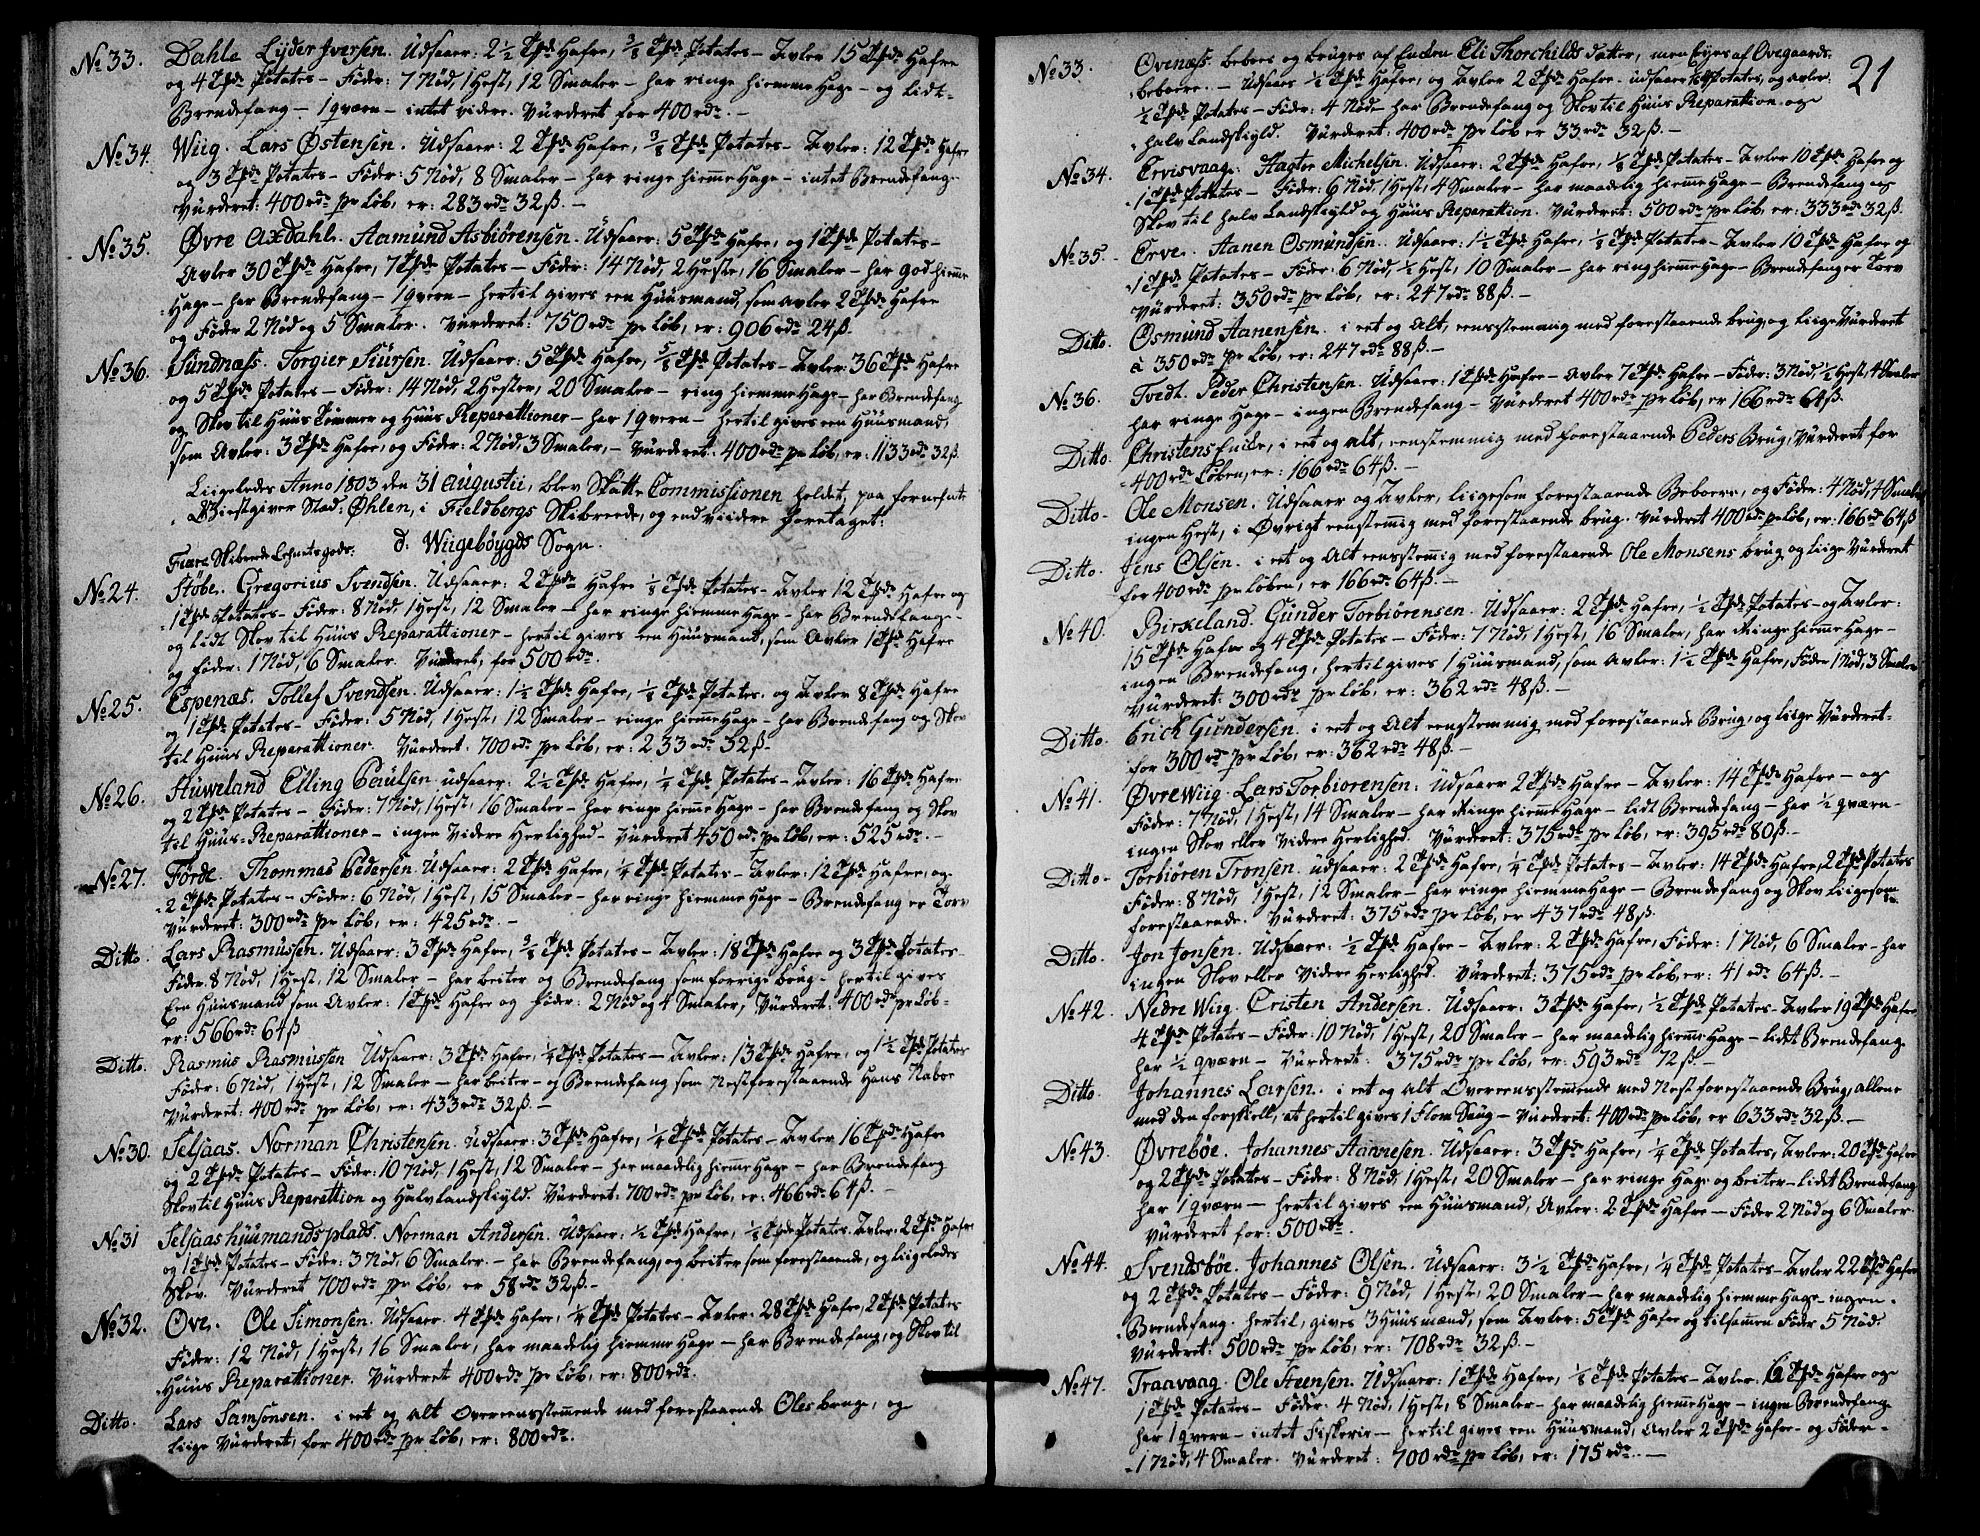 No 33. Dahle Lyder Iversen. Udsaaer: 2½ Tpdr Hafre, 3/8 Tpdr Potates – Avler 15 Tpdr Hafre
og 4 Tpdr Potates – Føder: 7 Nød, 1 Hest, 12 Smaler – har ringe hiemme Hage – og lidt
Brendefang – 1 qværn – intet videre. Vürderet for 400 rdr. –
No 34. Wiig. Lars Østensen. Udsaaer: 2 Tpdr Hafre, 3/8 Tpdr Potates – Avler: 12 Tpdr Hafre
og 3 Tpdr Potates – Føder: 5 Nød, 8 Smaler – har ringe hieme Hage – intet Brendefang –
Vürderet: 400 rdr pr Løb, er: 283 rdr 32 ß. –
No 35. Øvre Axdahl. Aamund Asbiørensen. Udsaaer: 5 Tpdr Hafre, og 1 Tpdr Potates –
Avler 30 Tpdr Hafre, 7 Tpdr Potates – Føder: 14 Nød, 2 Heste, 16 Smaler – har god hieme
Hage – har Brendefang – 1 qvern – hertil gives een Huusmand, som avler 2 Tpdr Hafre
og Føder 2 Nød og 5 Smaler. Vurderet: 750 rdr pr Løb, er: 906 rdr 24 ß.
No 36. Sundnæss. Torgier Siursen. Udsaaer: 5 Tpdr Hafre, 5/8 Tpdr Potates – Avler: 36 Tpdr Hafre
og 5 Tpdr Potates – Føder: 14 Nød, 2 Hester, 20 Smaler – ring hiemme Hage – har Brendefang
og Skov til Huus Tømmer og Huus Reparationer – har 1 qvern – hertil gives een Huusmand,
som Avler: 3 Tpdr Hafre, og Føder: 2 Nød, 3 Smaler, – Vurderet: 400 rdr pr Løb, er: 1133 rdr 32 ß.
Liigeledes Anno 1803 den 31 Augustii, blev Skatte Commissionen holdet, paa fornefnte
Giestgiver Stad: Øhlen, i Fieldbergs Skibreede, og endviidere foretaget:
Fiære Skibrede Lehnetsgods. d: Wiigebøygds Sogn.
No 24. Støbe. Gregorius Svendsen. Udsaaer: 2 Tpdr Hafre 1/8 Tpdr Potates – Avler 12 Tpdr Hafre og
1 Tpdr Potates – Føder: 8 Nød, 1 Hest, 12 Smaler – har ringe hiemme Hage – har Brendefang –
og lidt Skov til Huus Reparationer – hertil gives een Huusmand, som Avler 1 Tpdr Hafre
og føder: 1 Nød, 6 Smaler. Vurderet, for 500 rdr.
No 25. Espenæs. Tollef Svendsen. Udsaaer: 1½ Tpdr Hafre, 1/8 Tpdr Potates. og Avler 8 Tpdr Hafre
og 1 Tpdr Potates – Føder: 5 Nød, 1 Hest, 12 Smaler – ringe hieme Hage – har Brendefang og Skov
til Huus Reparationer. Vurderet: 700 rdr pr Løb, er: 233 rdr 32 ß –
No 26. Huweland Elling Paulsen. udsaaer: 2½ Tpdr Hafre, ¼ Tpdr Potates – Avler: 16 Tpdr Hafre
og 2 Tpdr Potates – Føder: 7 Nød, 1 Hest, 16 Smaler – har ringe hieme Hage – har Brendefang og Skov
til Huus-Reparationer – ingen Videre Herlighed – Vurderet 450 rdr pr Løb, er: 525 rdr. –
No 27. Førde. Thommas Pedersen. Udsaaer: 2 Tpdr Hafre, ¼ Tpdr Potates – Avler: 12 Tpdr Hafre, og
2 Tpdr Potates – Føder: 6 Nød, 1 Hest, 15 Smaler – har ringe hiemme Hage – Brendefang er Torv
Vurderet: 300 rdr pr Løb, er: 425 rdr. –
Ditto. Lars Rasmussen. Udsaaer: 3 Tpdr Hafre, 3/8 Tpdr Potates – Avler: 18 Tpdr Hafre og 3 Tpdr Potates –
Føder 8 Nød, 1 Hest, 12 Smaler – har beiter og Brendefang som forrige brug – hertil gives
Een Huusmand som Avler: 1 Tpdr Hafre og føder: 2 Nød og 4 Smaler, Vurderet: 400 rdr pr Løb –
er: 566 rdr 64 ß
Ditto. Rasmus Rasmussen Udsaaer: 3 Tpdr Hafre, ¼ Tpdr Potates – Avler: 13 Tpdr Hafre, og 1½ Tpdr Potates
Føder: 6 Nød, 1 Hest, 12 Smaler – har beiter – og Brendefang som Nestforestaaende Hans Naboe
Vurderet: 400 rdr pr Løb, er: 433 rdr 32 ß. –
No 30. Selsaas. Norman Christensen. Udsaaer: 3 Tpdr Hafre, ¼ Tpdr Potates – Avler 16 Tpdr Hafre
og 2 Tpdr Potates – Føder: 10 Nød, 1 Hest, 12 Smaler – har maadelig hieme Hage – har Brendefang
Skov til Huus Reparation og Halv Landskyld. Vurderet: 700 rdr pr Løb, er: 466 rdr 64 ß. –
No 31 Selsaas huumandsplads. Norman Andersen. Udsaaer: ½ Tpdr Hafre, 1/8 Tpdr Potates. Avler: 2 Tpdr Hafre
og 1 Tpdr Potates – Føder: 3 Nød, 6 Smaler. – har Brendefang, og beiter som forestaaende, og liigeledes
Skov. Vurderet 700 rdr pr Løb, er 58 rdr 32 ß. –
No 32. Ove. Ole Simonsen. Udsaaer. 4 Tpdr Hafre, ¼ Tpdr Potates – Avler: 28 Tpdr Hafre, 2 Tpdr Potates
Føder: 12 Nød, 1 Hest, 16 Smaler, har maadelig hiemme Hage – har Brendefang, og Skov til
Huus Reparationer. Vurderet 400 rdr pr Løb, er: 800 rdr.
Ditto. Lars Samsonsen. i eet og alt Overeensstemende med forestaaende Oles brug, og
liige Vurderet, for 400 rdr pr Løb, er: 800 rdr.
21
No 33. Ovenæss. beboes og bruges af Enken Eli Thorchilds datter, men Eyes af Ovegaards
beboere. – Udsaaer ½ Tpdr Hafre, og Avler 2 Tpdr Hafre. udsaaer Potates, og avler
½ Tpdr Potates – Føder: 4 Nød – har Brendefang og Skov til Huus Reparation og
halv Landskyld. Vurderet: 400 rdr pr Løb er 33 rdr 32 ß. –
No 34. Ervisvaag. Aagtor Michelsen. Udsaaer: 2 Tpdr Hafre, 1/8 Tpdr Potates – Avler 10 Tpdr Hafre og
1 Tpdr Potates – Føder: 6 Nød 1 Hest, 4 Smaler – har maadelig hieme Hage – Brendefang og
Skov til halv Landskyld og Huus Reparation. Vurderet: 500 rdr pr Løb, er: 333 rdr 32 ß.
No 35. Erve. Aanen Osmundsen. Udsaaer: 1½ Tpdr Hafre, 1/8 Tpdr Potates – Avler 10 Tpdr Hafre, og
1 Tpdr Potates – Føder: 6 Nød, ½ Hest, 10 Smaler – har ring hieme Hage – Brendefang er Torv
Vurderet: 350 rdr pr Løb, er: 247 rdr 88 ß. –
Ditto. Osmund Aanensen. i eet og Alt, eensstemmig med forestaaende brug, og liige Vurderet
à 350 rdr pr Løb, er: 247 rdr 88 ß. –
No 36. Tvedt. Peder Christensen. Udsaaer: 1 Tpdr Hafre – Avler 7 Tpdr Hafre – Føder: 3 Nød, ½ Hest, 4 Smaler
har ringe Hage – ingen Brendefang – Vurderet 400 rdr pr Løb, er 166 rdr 64 ß.
Ditto. Christens Enke, i eet og alt, eenstemmig med forestaaende Peders Brug, Vurderet for
400 rdr Løben, er: 166 rdr 64 ß. –
Ditto – Ole Monsen. Udsaaer og Avler, liigesom forestaaende Beboere, og Føder: 4 Nød, 4 Smaler
ingen Hest, i Øvrigt eenstemig med forestaaende brug. Vurderet 400 rdr pr Løb, er: 166 rdr 64 ß
Ditto. Jens Olsen. i eet og Alt eensstemig med forestaaende Ole Monsens brug og liige Vurderet
for 400 rdr pr Løben, er 166 rdr 64 ß. –
No 40. Birkeland. Gunder Torbiørensen. Udsaaer: 2 Tpdr Hafre, ½ Tpdr Potates – og Avler:
15 Tpdr Hafre og 4 Tpdr Potates – Føder: 7 Nød, 1 Hest, 16 Smaler, har Ringe hieme Hage –
ingen Brendefang, hertil gives 1 Huusmand, som Avler: 1½ Tpdr Hafre, Føder 1 Nød, 3 Smaler
Vurderet: 300 rdr pr Løb, er: 362 rdr 48 ß. –
Ditto. Erich Gundersen. i eet og Alt eenstemmig med forestaaende Brug, og liige Vurderet –
for 300 rdr pr Løb, er: 362 rdr 48 ß. –
No 41. Øvre Wiig. Lars Torbiorensen: Udsaaer 2 Tpdr Hafre – Avler: 14 Tpdr Hafre – og
Føder: 7 Nød, 1 Hest, 14 Smaler – har Ringe hieme Hage – lidt Brendefang – har ½ qværn –
ingen Skov eller Videre Herlighed. Vurderet: 375 rdr pr Løb, er: 395 rdr 80 ß. –
Ditto – Torbiøren Tronsen. udsaaer: 2 Tpdr Hafre, ¼ Tpdr Potates – Avler: 14 Tpdr Hafre, 2 Tpdr Potates
Føder: 8 Nød, 1 Hest, 12 Smaler – har ringe hieme Hage – Brendefang og Skov liigesom
forestaaende. Vurderet: 375 rdr pr Løb, er 437 rdr 48 ß.
Ditto. Jon Jonsen. Udsaaer: ½ Tpdr Hafre – Avler: 2 Tpdr Hafre, Føder: 1 Nød, 6 Smaler – har
ingen Skov eller Videre Herlighed. Vurderet: 375 rdr pr Løb, er: 41 rdr 64 ß. –
No 42. Nedre Wiig. Cristen Andersen. Udsaaer: 3 Tpdr Hafre, ½ Tpdr Potates – Avler 19 Tpdr Hafre
4 Tpdr Potates – Føder: 10 Nød, 1 Hest, 20 Smaler – har maadelig hieme Hage – lidet Brendefang
har ½ qværn – Vurderet: 375 rdr pr Løb, er: 593 rdr 72 ß. –
Ditto. Johannes Larsen. i eet og Alt Overeensstemende med Nest forestaaende Brug, allene
med den forskiell, at hertil gives 1 Flom Saug – Vurderet: 400 rdr pr Løb, er 633 rdr 32 ß. –
No 43. Øvrebøe. Johannes Hannesen. Udsaaer: 3 Tpdr Hafre, ¼ Tpdr Potates, Avler: 20 Tpdr Hafre
og 2 Tpdr Potates – Føder: 8 Nød, 1 Hest, 20 Smaler – har ringe Hage og beiter – lidt Brendefang
har 1 qværn – hertil gives een Huusmand, Avler: 2 Tpdr Hafre – Føder 2 Nød og 6 Smaler.
Vurderet for: 500 rdr.
No 44. Svendsbøe. Johannes Olsen. Udsaaer: 3½ Tpdr Hafre, ¼ Tpdr Potates – Avler 22 Tpdr Hafre
og 2 Tpdr Potates – Føder: 9 Nød, 1 Hest, 20 Smaler – har maadelig hiemme Hage – ingen
Brendefang. hertil, gives 3 Huusmænd, som Avler: 5 Tpdr Hafre og tilsamen Føder 5 Nød
Vurderet: 500 rdr pr Løb, er: 708 rdr 32 ß. –
No 47. Traavaag. Ole Steensen. Udsaaer: 1 Tpdr Hafre, 1/8 Tpdr Potates – Avler: 6 Tpdr Hafre og
1 Tpdr Potates – Føder: 4 Nød, 1 Hest, 8 Smaler – har maadelig hieme Hage – ingen Brendefang
har 1 qvern – intet Fiskerie – hertil gives een Huusmand, Avler 2 Tpdr Hafre – og Føder –
1 Nød, 4 Smaler. Vurderet: 700 rdr pr Løb, er: 175 rdr. –